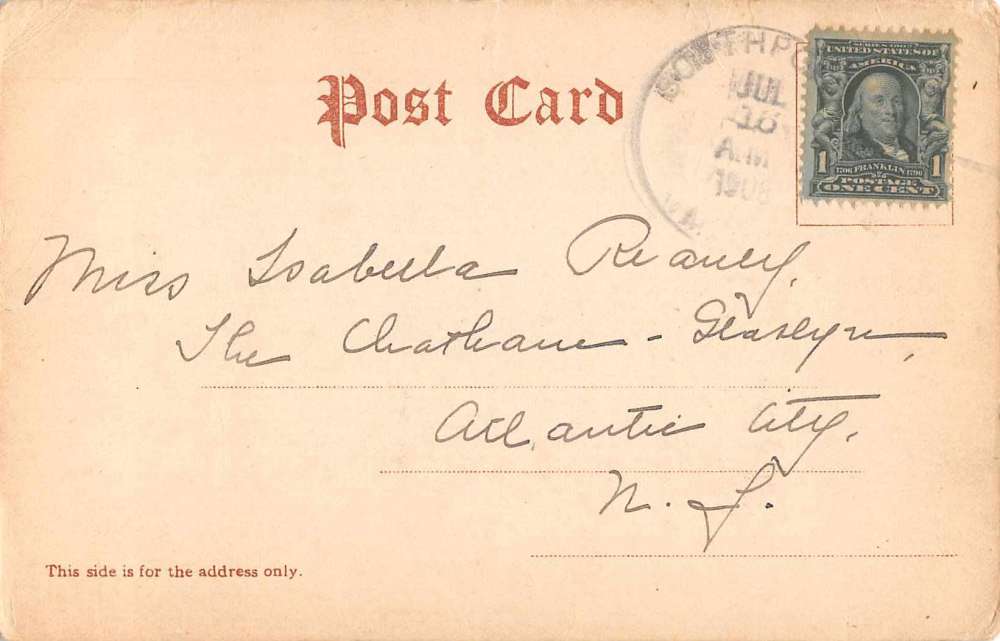 Post Card
JUL
AM
SERIES 1902
UNITED STATES OF
AMERICA
1 1
1706 FRANKLIN 1790
POSTAGE
ONE CENT
Miss Isabella Reaney,
The Chatham - Glaslyn,
Atlantic City,
N. J.
This side is for the address only.